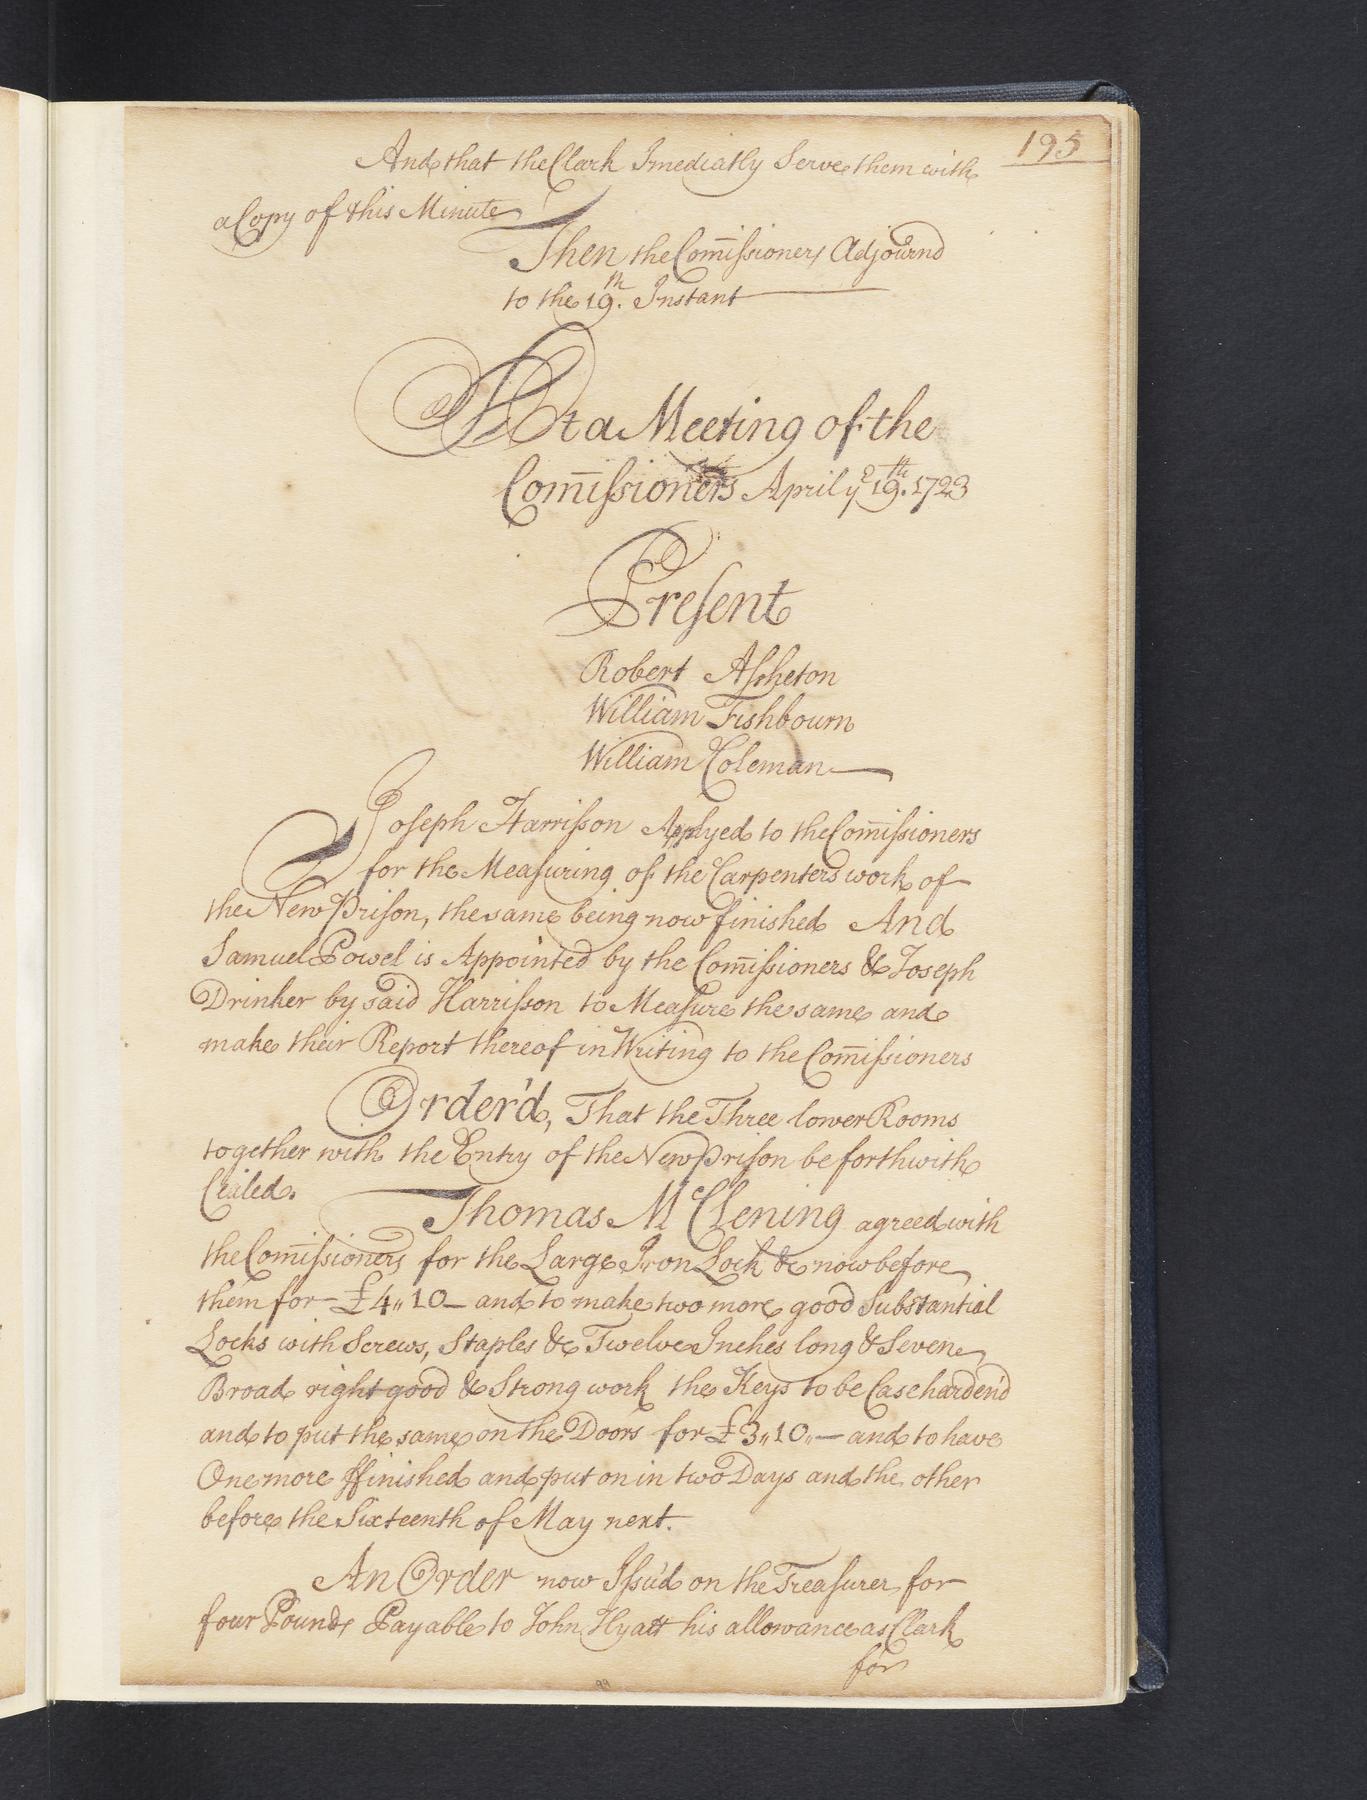 195
And that the Clark Imediatly Serve them with
a Copy of this Minute
Then the Com̄issioners Adjournd
to the 19th. Instant
At a Meeting of the
Com̄issioners April ye 19th. 1723
Present
Robert Assheton
William Fishbourn
William Coleman
Joseph Harrisson Applyed to the Com̄issioners
for the Measuring of the Carpenters work of
the New Prison, the same being now finished And
Samuel Powel is Appointed by the Com̄issioners & Joseph
Drinker by said Harrisson to Measure the same and
make their Report thereof in Writing to the Com̄issioners
Order'd, That the Three lower Rooms
together with the Entry of the New Prison be forthwith
Cealed.
Thomas McClening agreed with
the Com̄issioners for the Large Iron Lock &c now before
them for £4,,10 and to make two more good Substantial
Locks with Screws, Staples &c Twelve Inches long & Seven
Broad right good & Strong work the Keys to be Casehardend
and to put the same on the Doors for £3,,10,,— and to have
One more ffinished and put on in two Days and the other
before the Sixteenth of May next.
An Order now Issu'd on the Treasurer for
four Pounds Payable to John Hyatt his allowance as Clark
for
99